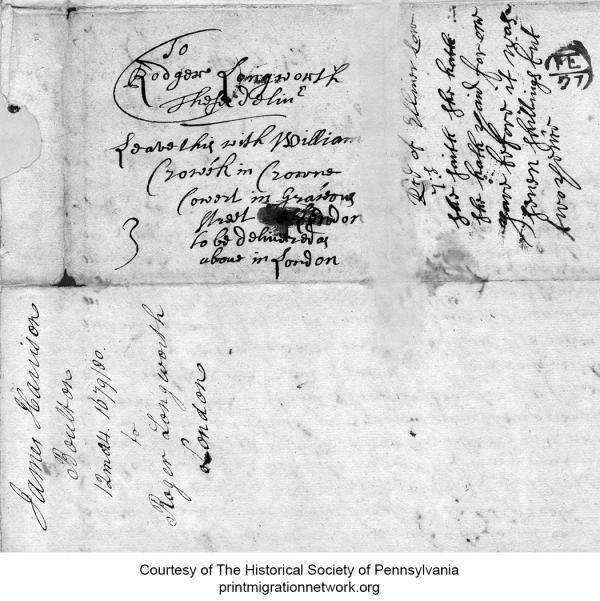 To
Rodger Longworth
these deliur
Leave this with William
in Crowne
Cowert in Gratious
street London
to be delivered as
above in London
3
Rcd of Ellinor Low
she saith she hath
she hath paid for one
yeard before it was
seven shillings but
FE
27
James Harrison
Boulton
12mo 4. 1679/80.
to
Roger Longworth
London
Courtesy of The Historical Society of Pennsylvania
printmigrationnetwork.org